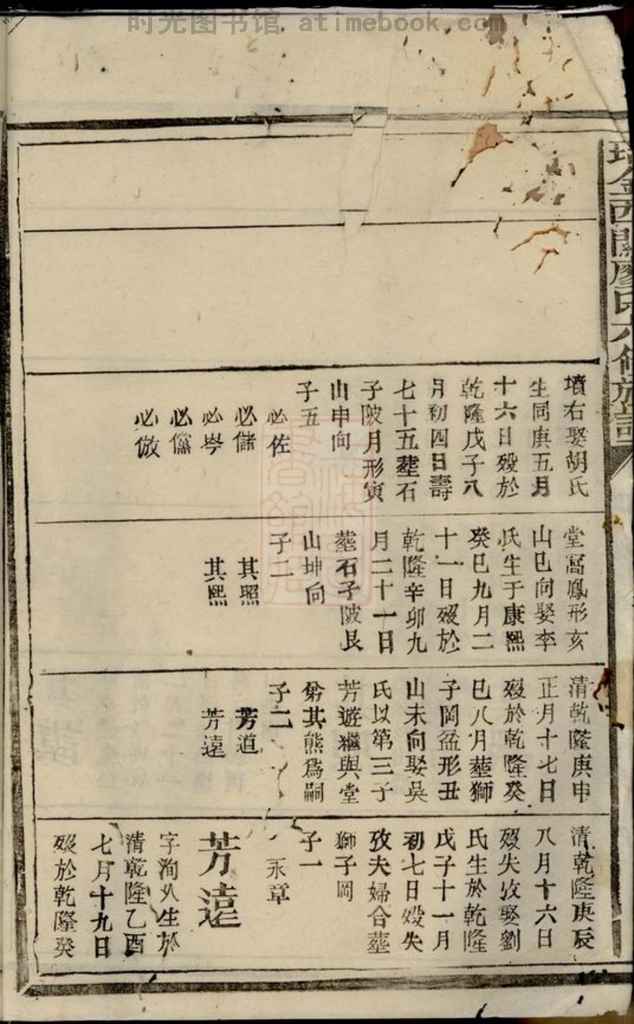 时光图书馆 atimebook.com
金西關廖氏六修族譜
墳右娶胡氏
生同庚五月
十六日歿於
乾隆戊子八
月初四日壽
七十五塟石
子陂月形寅
山申向
子五
必佐
必儲
必岑
必儻
必倣
堂窩鳳形亥
山巳向娶李
氏生于康熙
癸巳九月二
十一日歿於
乾隆辛卯九
月二十一日
塟石子陂艮
山坤向
子二
其照
其熙
清乾隆庚申
正月十七日
歿於乾隆癸
巳八月塟獅
子岡盆形丑
山未向娶吳
氏以第三子
芳遊繼與堂
弟其熊爲嗣
子二
芳道
芳遠
清乾隆庚辰
八月十六日
歿失攷娶劉
氏生於乾隆
戊子十一月
初七日歿失
攷夫婦合塟
獅子岡
子一
永章
芳遠
字洵从生於
清乾隆乙酉
七月十九日
歿於乾隆癸